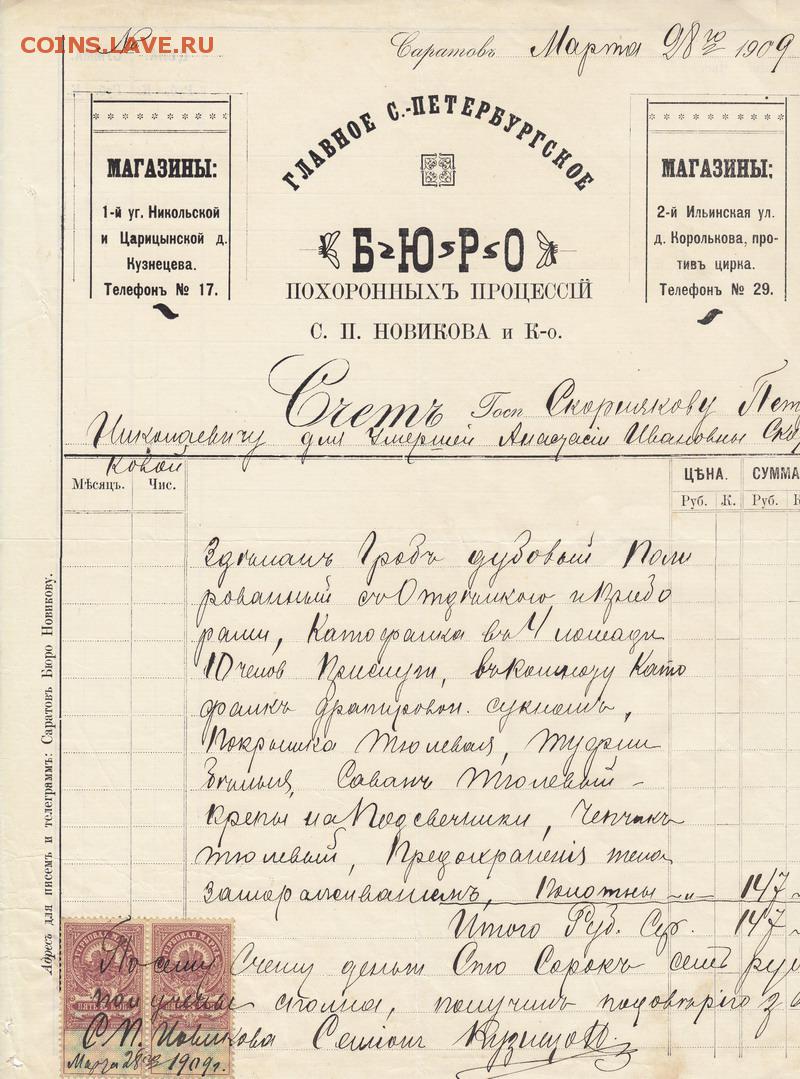 COINS.LAVE.RU
№
Саратовъ Марта 28го 1909
МАГАЗИНЫ:
1-й уг. Никольской
и Царицынской д.
Кузнецева.
Телефонъ № 17.
ГЛАВНОЕ С.-ПЕТЕРБУРГСКОЕ
БЮРО
ПОХОРОННЫХЪ ПРОЦЕССІЙ
С. П. НОВИКОВА и К-о.
МАГАЗИНЫ:
2-й Ильинская ул.
д. Королькова, про-
тивъ цирка.
Телефонъ № 29.
Счетъ Госп Скорнякову Пет
Николаевичу для Умершей Анастасіи Ивановны Скор
ковой
Мѣсяцъ. Чис. ЦѢНА. СУММА
Руб. К. Руб. К
Здѣланъ Гробъ дубовый Поли
рованный съ Отдѣлкою и Прибо
рами, Катафалка въ 4 лошади
10 челов Прислуги, въ комнату Като
фалкъ драпирован. сукномъ,
Покрышка Тюлевая, Туфли
Бѣлыя, Саванъ Тюлевый
Крепы на Подсвечники, Чепчикъ
тюлевый, Предохраненія тела
Замораживаніемъ, Полотны 147
Итого Руб. Сер. 147
По сему Счету деньги Сто Сорокъ семь руб
получены сполна, получилъ
С П. Новикова Семіонъ
Марта 28 1909 г.
ГЕРБОВАЯ МАРКА
ГЕРБОВАЯ МАРКА
Адресъ для писемъ и телеграммъ: Саратовъ Бюро Новикову.